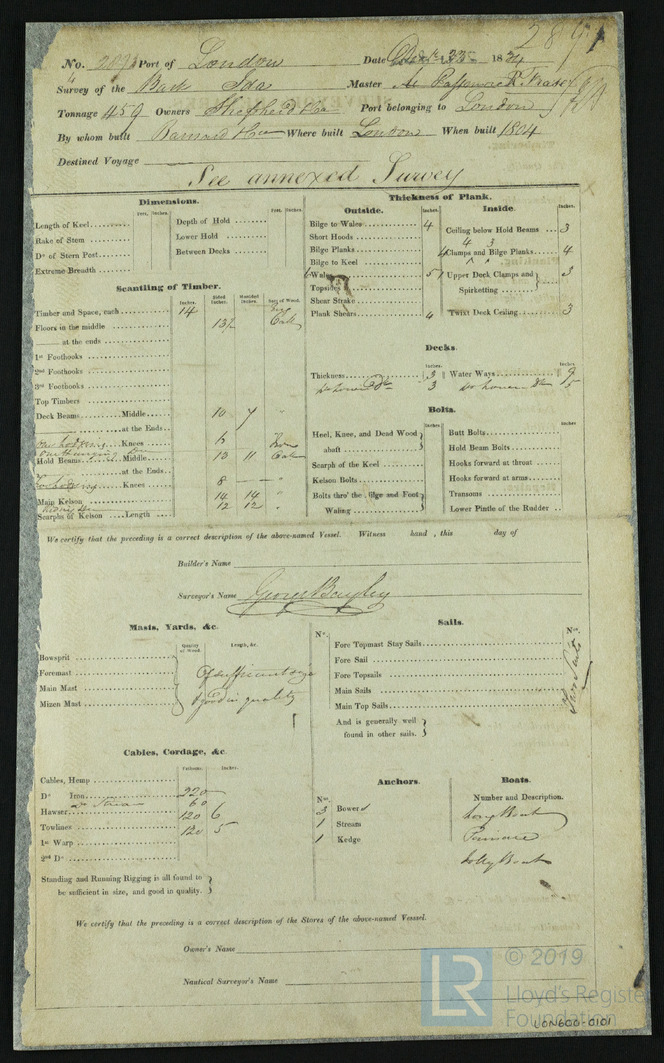 2891
No. 2091 Port of London Date 1834
Survey of the Bark Ida Master R. Fraser
Tonnage 459 Owners Shepherd & Co Port belonging to London
By whom built Barnard & Co Where built London When built 1804
Destined Voyage
See annexed Survey
Dimensions.
Feet. Inches.
Length of Keel
Rake of Stem
Do of Stern Post
Extreme Breadth
Feet. Inches.
Depth of Hold
Lower Hold
Between Decks
Scantling of Timber.
Inches. Sided Inches. Moulded Inches. Sort of Wood.
Timber and Space, each 14
Floors in the middle 13½ Oak
at the ends
1st Foothooks
2nd Foothooks
3rd Foothooks
Top Timbers
Deck Beams Middle 10 7 "
at the Ends
Knees 6
Hold Beams Middle 13 11 Oak
at the Ends
Knees 8 "
Main Kelson 14 14 "
12 12 "
Scarphs of Kelson Length
Thickness of Plank.
Outside. Inches.
Bilge to Wales 4
Short Hoods
Bilge Planks 4
Bilge to Keel
Wales 5
Topsides
Shear Strake
Plank Shears 4
Inside. Inches.
Ceiling below Hold Beams 3
4 3
Clamps and Bilge Planks 4
Upper Deck Clamps and Spirketting 3
Twixt Deck Ceiling 3
Decks.
Inches.
Thickness 3
do Lower Dk 3
Inches.
Water Ways 9
do Lower Dk 5
Bolts.
Inches
Heel, Knee, and Dead Wood abaft
Scarph of the Keel
Kelson Bolts
Bolts thro' the Bilge and Foot Waling
Inches
Butt Bolts
Hold Beam Bolts
Hooks forward at throat
Hooks forward at arms
Transoms
Lower Pintle of the Rudder
We certify that the preceding is a correct description of the above-named Vessel. Witness hand , this day of
Builder's Name
Surveyor's Name George Bayley
Masts, Yards, &c.
Quality of Wood. Length, &c.
Bowsprit
Foremast
Main Mast
Mizen Mast
Of sufficient size
& good in quality
Sails.
No. No.
Fore Topmast Stay Sails
Fore Sail
Fore Topsails
Main Sails
Main Top Sails
And is generally well found in other sails.
Two Suits
Cables, Cordage, &c
Fathoms. Inches.
Cables, Hemp
Do Iron 220
60
Hawser 120 6
Towlines 120 5
1st Warp
2nd Do
Standing and Running Rigging is all found to be sufficient in size, and good in quality.
Anchors.
Nos.
3 Bowers
1 Stream
1 Kedge
Boats.
Number and Description.
Long Boat
Pinnace
Jolly Boat
We certify that the preceding is a correct description of the Stores of the above-named Vessel.
Owner's Name
Nautical Surveyor's Name
LR
© 2019
Lloyd's Register
Foundation
LON600-0101